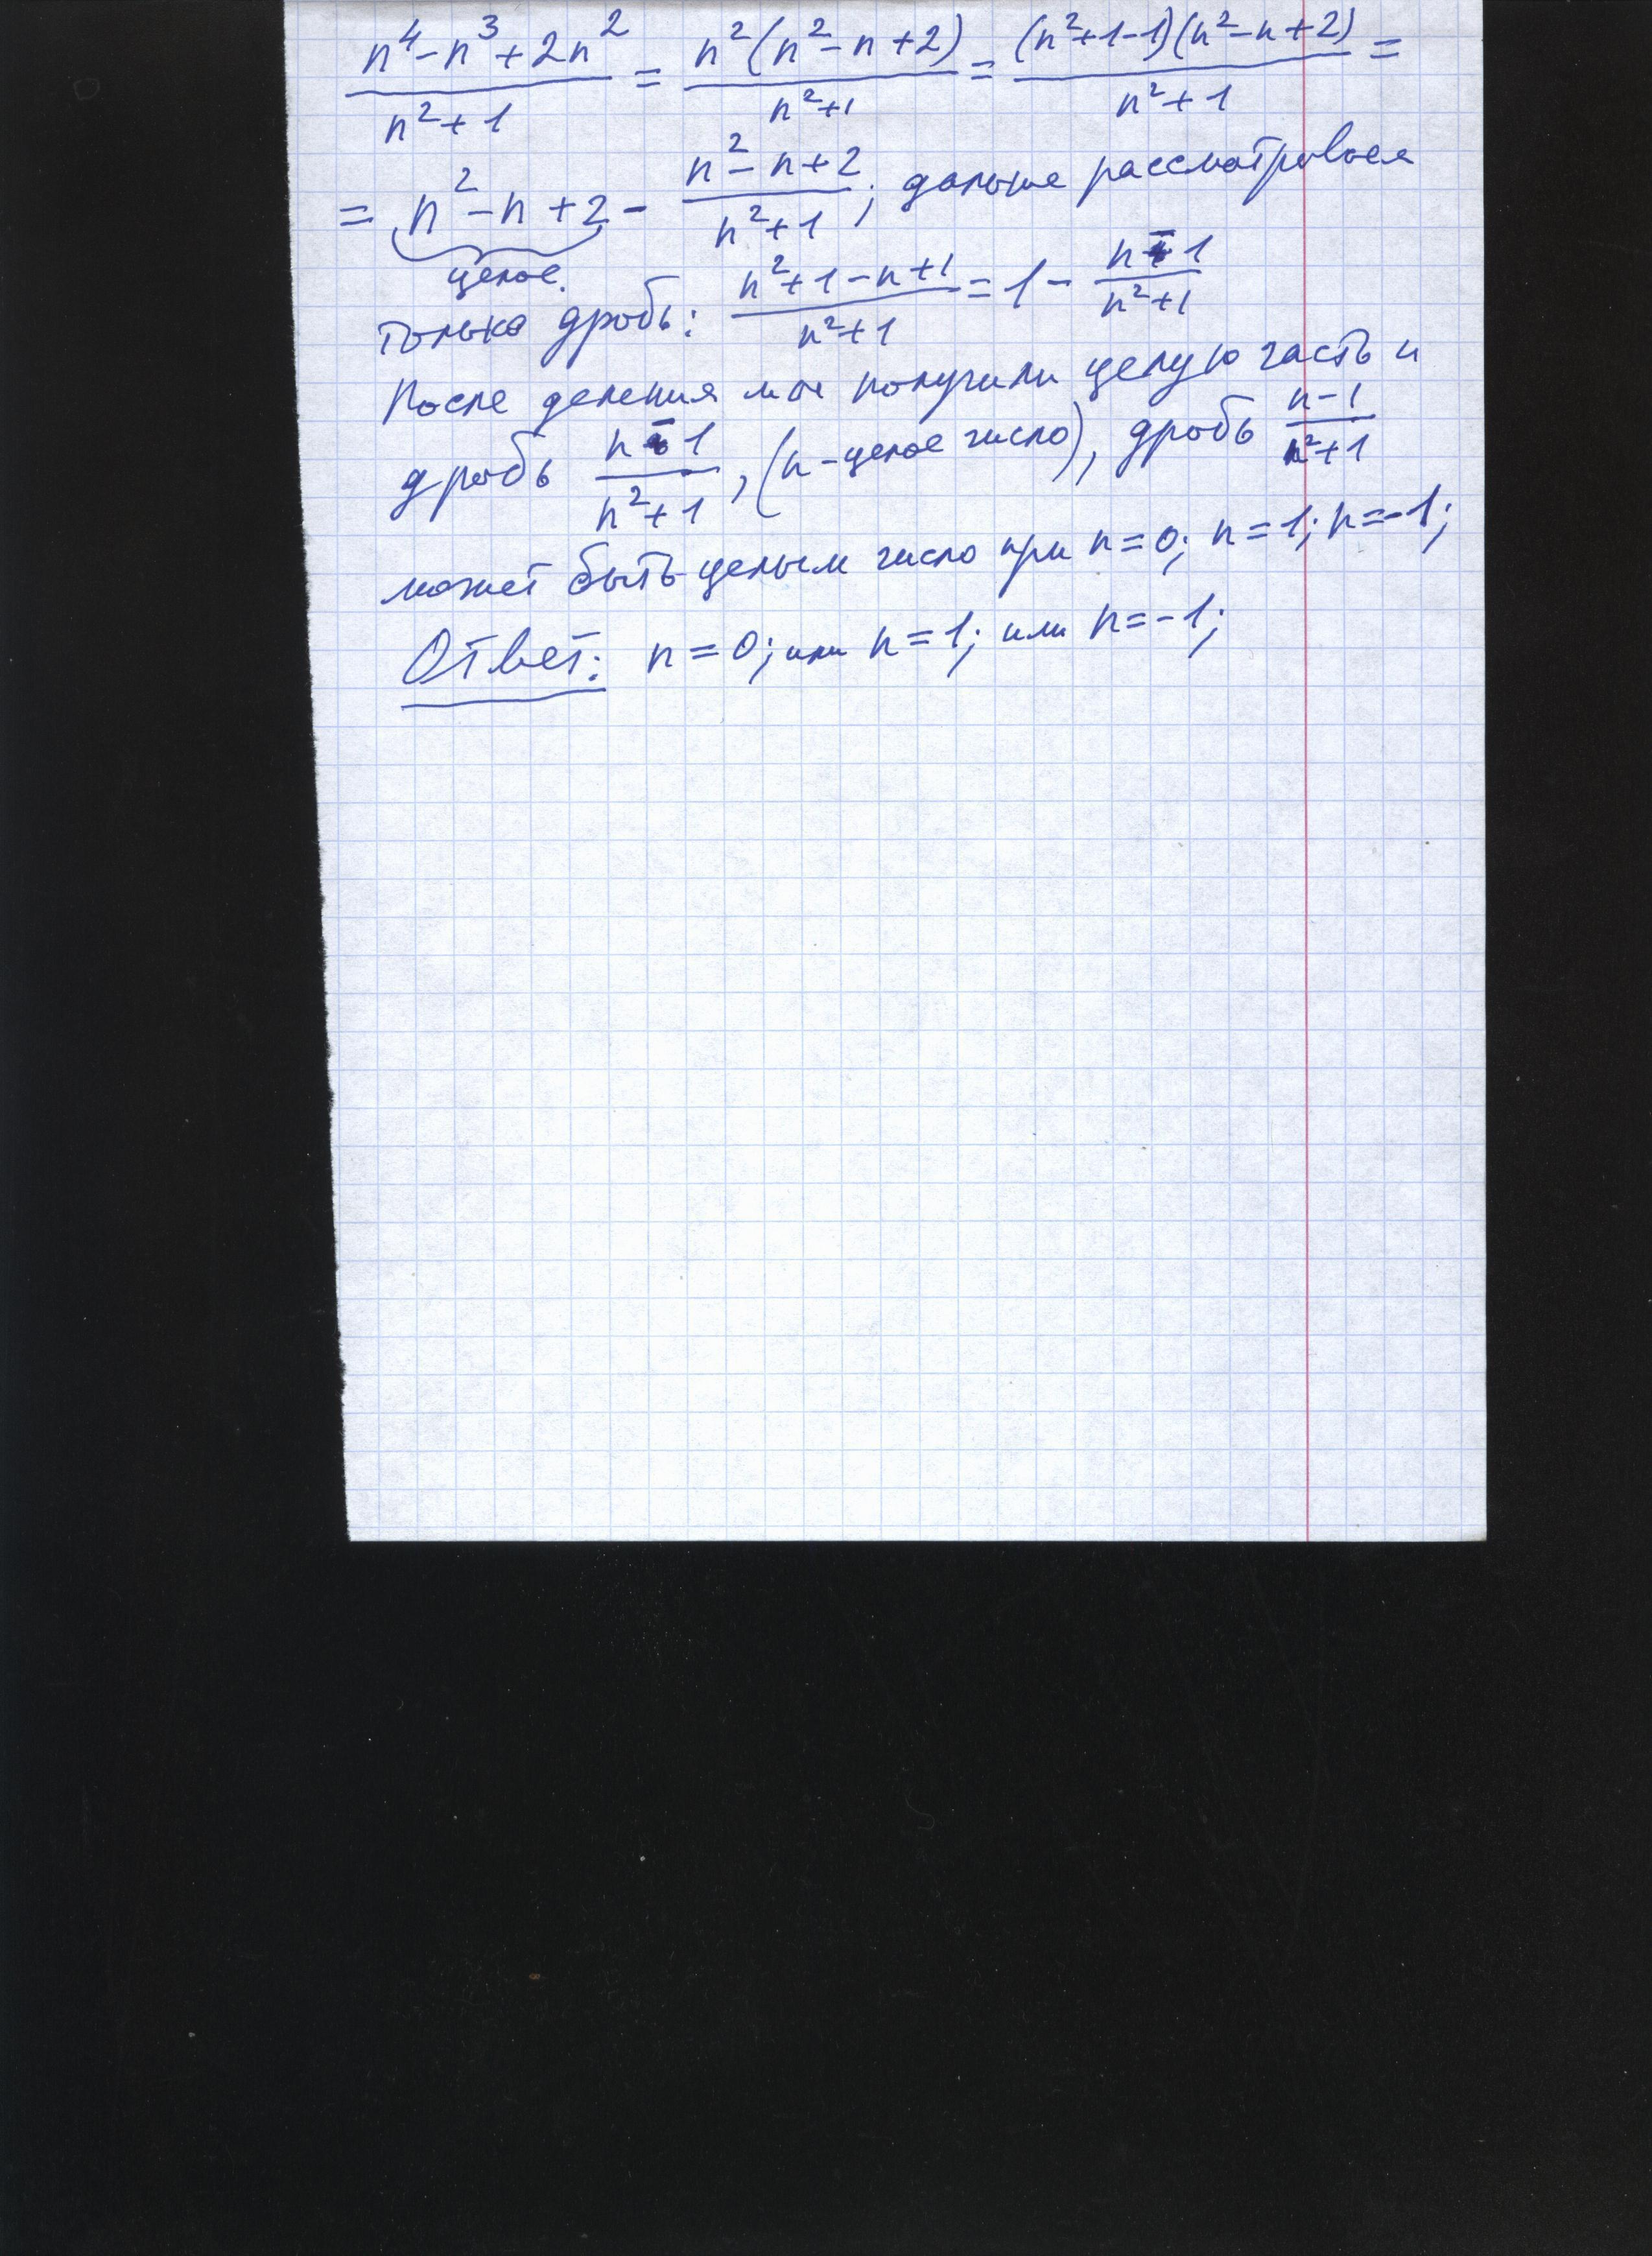 (n⁴-n³+2n²)/(n²+1) = n²(n²-n+2)/(n²+1) = (n²+1-1)(n²-n+2)/(n²+1) =
= n²-n+2 - (n²-n+2)/(n²+1); дальше рассматриваем
целое.
только дробь: (n²+1-n+1)/(n²+1) = 1 - (n-1)/(n²+1)
После деления мы получили целую часть и
дробь (n-1)/(n²+1), (n-целое число), дробь (n-1)/(n²+1)
может быть целым число при n=0; n=1; n=-1;
Ответ: n=0; или n=1; или n=-1;